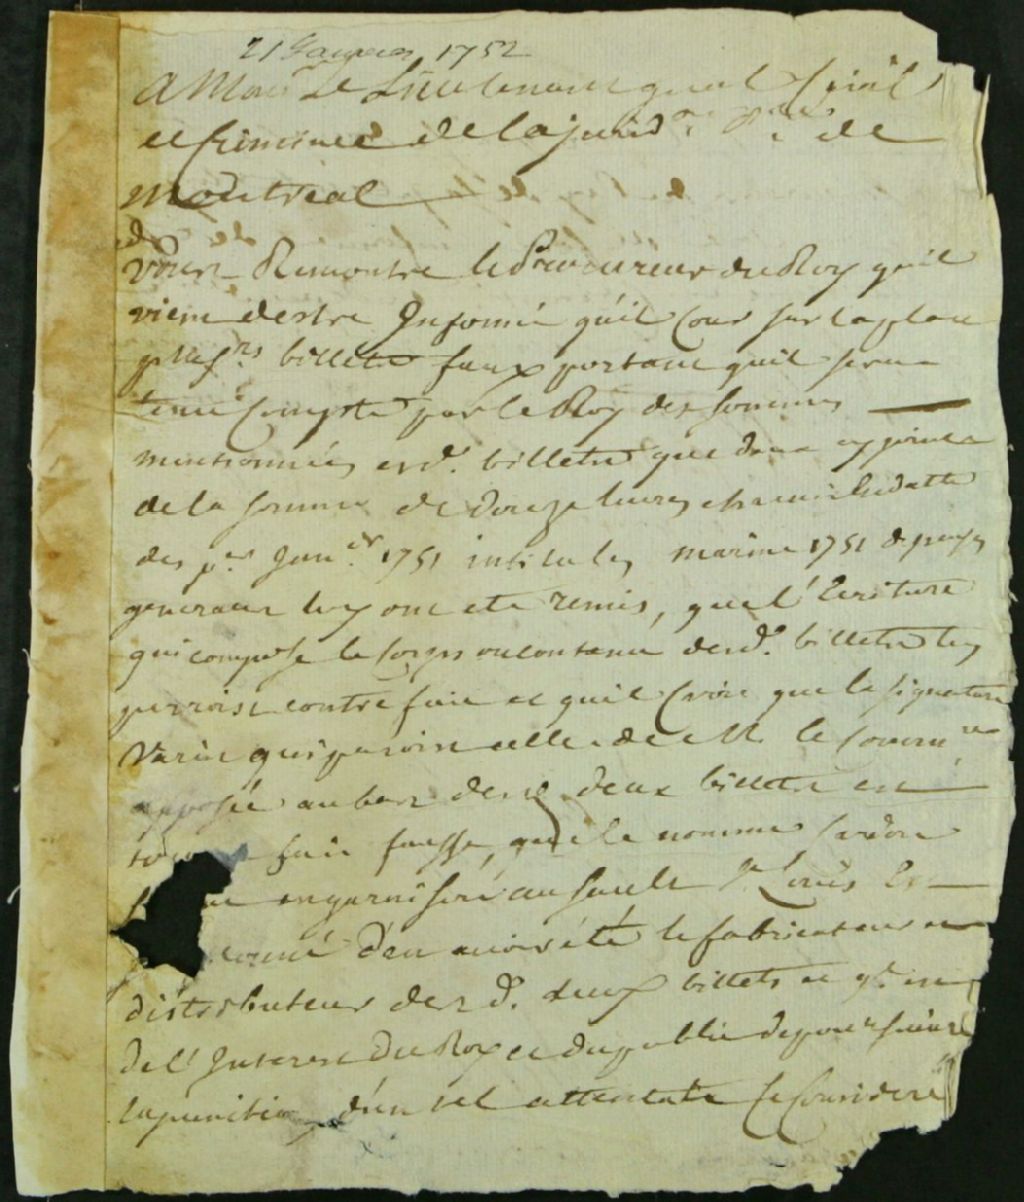 21 Janvier 1752
A Mons. Le Lieutenant gnal Civil
et Criminel de la jurid. de
Montreal
Vous Remontre le Procureur du Roy quil
vient destre Informé quil Cour sur la place
plusrs. billets faux portant quil sera
tenu Compte par le Roy des sommes
mentionnées esd. billets que deux
de la somme de douze livres chacun de datte
des pr. Janer. 1751 intitulés marine 1751 depenses
generaux luy ont ete remis, que l'Ecriture
qui compose le corps ou contenu desd. billets luy
paroist contrefait et quil Croire que la signature
Varin qui paroist celle de M. le
apposée au bas desd. deux billets est
fait fausse, que le nommé
en garnison au Sault St. Louis Est
d'en avoir été le fabricateur et
distributeur desd. deux billets et q. est
de l'Interest Du Roy et du public de poursuivre
la punition d'un tel attentat Ce Consideré